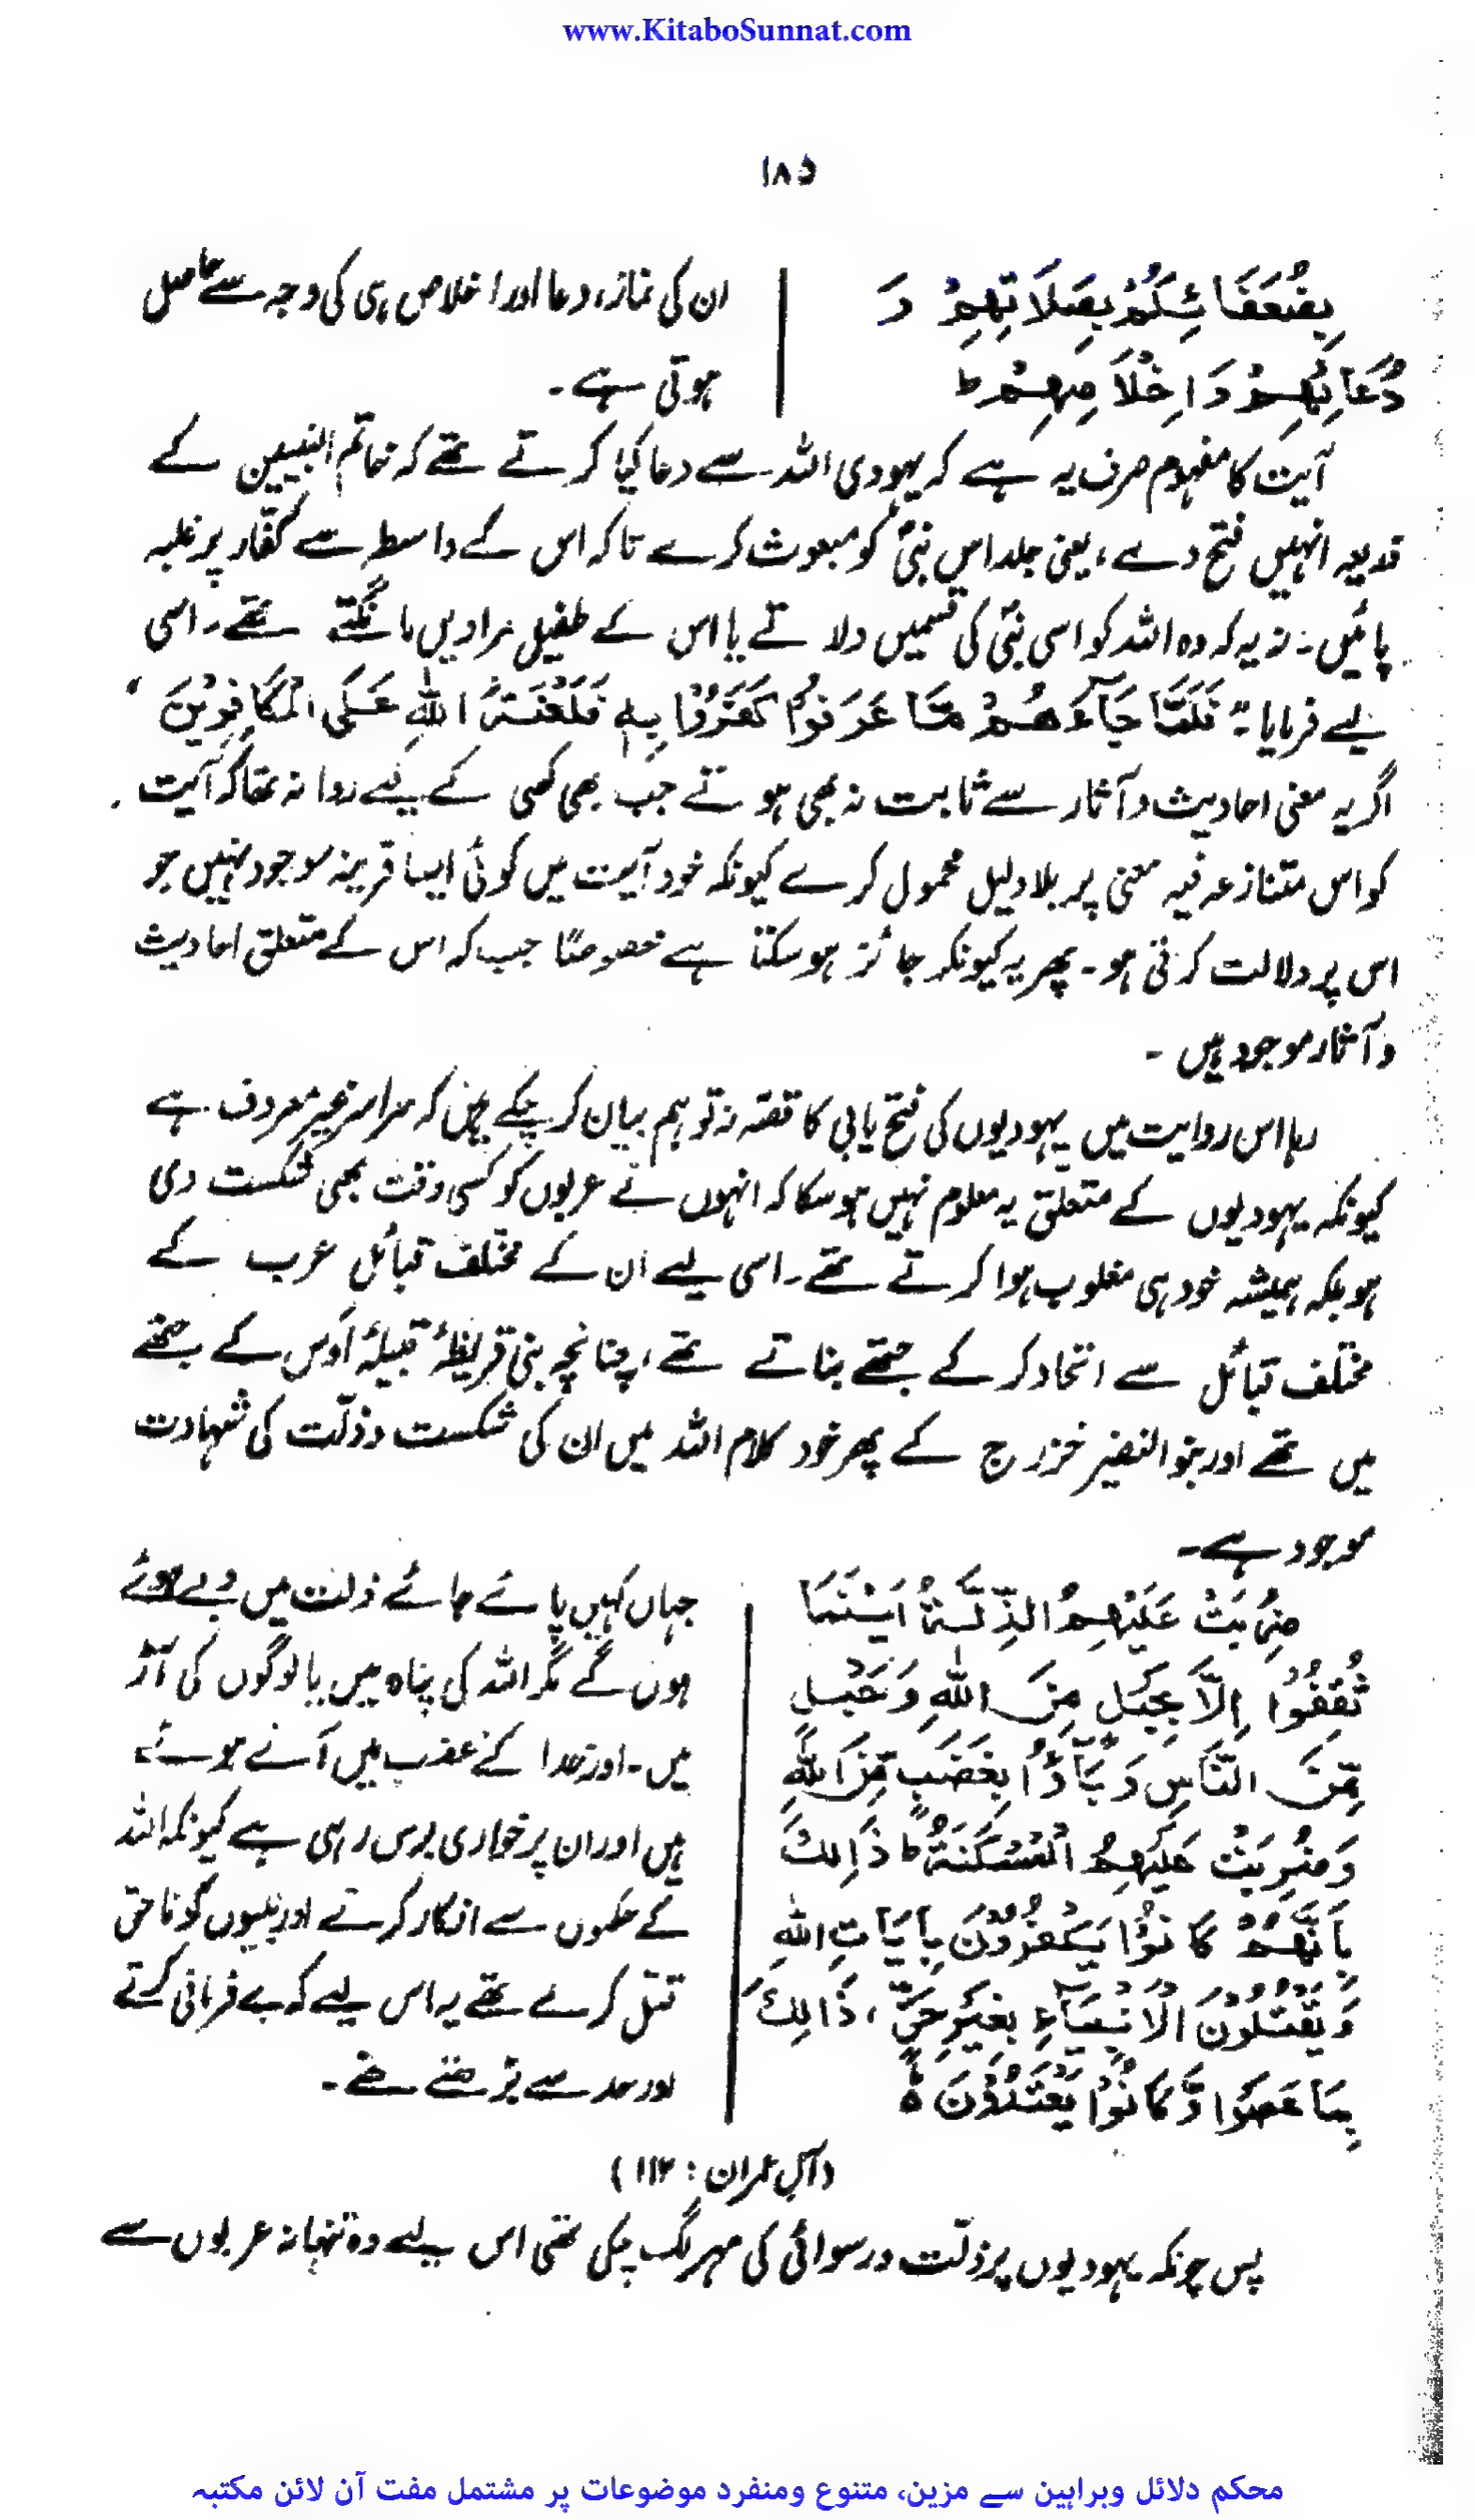 www.KitaboSunnat.com
۱۸۵
بِضُعَفَائِكُمْ بِصَلَاتِهِمْ وَ
دُعَائِهِمْ وَاِخْلَاصِهِمْ ط
ان کی نماز، دعا اور اخلاص ہی کی وجہ سے حاصل
ہوتی ہے۔
آیت کا مفہوم صرف یہ ہے کہ یہودی اللہ سے دعا کیا کرتے تھے کہ خاتم النبیین کے
ذریعہ انہیں فتح دے، یعنی جلد اس نبیؐ کو مبعوث کرے تاکہ اس کے واسطہ سے کفّار پر غلبہ
پائیں۔ نہ یہ کہ وہ اللہ کو اسی نبیؐ کی قسمیں دلاتے یا اس کے طفیل مرادیں مانگتے تھے۔ اسی
لیے فرمایا: "فَلَمَّا جَآءَهُمْ مَّا عَرَفُوْا كَفَرُوْا بِهٖ فَلَعْنَةُ اللهِ عَلَى الْكَافِرِيْنَ"
اگر یہ معنی احادیث و آثار سے ثابت نہ بھی ہوتے جب بھی کسی کے لیے روا نہ تھا کہ آیت
کو اس متنازعہ فیہ معنی پر بلا دلیل محمول کرے کیونکہ خود آیت میں کوئی ایسا قرینہ موجود نہیں جو
اس پر دلالت کرتی ہو۔ پھر یہ کیونکر جائز ہو سکتا ہے خصوصًا جب کہ اس کے متعلق احادیث
و آثار موجود ہیں۔
رہا اس روایت میں یہودیوں کی فتح یابی کا قصّہ تو ہم بیان کر چکے ہیں کہ سراسر غیر معروف ہے
کیونکہ یہودیوں کے متعلق یہ معلوم نہیں ہو سکا کہ انہوں نے عربوں کو کسی وقت بھی شکست دی
ہو بلکہ ہمیشہ خود ہی مغلوب ہوا کرتے تھے۔ اسی لیے ان کے مختلف قبائل عرب کے
مختلف قبائل سے اتحاد کر کے جتھے بناتے تھے، چنانچہ بنی قریظہ قبیلۂ اَوس کے جتھے
میں تھے اور بنو النضیر خزرج کے پھر خود کلام اللہ میں ان کی شکست و ذلّت کی شہادت
موجود ہے۔
ضُرِبَتْ عَلَيْهِمُ الذِّلَّةُ اَيْنَمَا
ثُقِفُوْا اِلَّا بِحَبْلٍ مِنَ اللهِ وَحَبْلٍ
مِّنَ النَّاسِ وَبَآءُوْا بِغَضَبٍ مِّنَ اللهِ
وَضُرِبَتْ عَلَيْهِمُ الْمَسْكَنَةُ ط ذَالِكَ
بِاَنَّهُمْ كَانُوْا يَكْفُرُوْنَ بِاٰيَاتِ اللهِ
وَيَقْتُلُوْنَ الْاَنْبِيَآءَ بِغَيْرِ حَقٍّ، ذَالِكَ
بِمَا عَصَوْا وَّكَانُوْا يَعْتَدُوْنَ ہ
جہاں کہیں پائے جائے ذلت میں دبے ہوئے
ہوں گے مگر اللہ کی پناہ میں یا لوگوں کی آڑ
میں۔ اور خدا کے غضب میں آئے ہوئے
ہیں اور ان پر خواری برس رہی ہے کیونکہ اللہ
کے حکموں سے انکار کرتے اور نبیوں کو ناحق
قتل کرتے تھے یہ اس لیے کہ بے فرمانی کرتے
اور حد سے بڑھتے تھے۔
(آل عمران: ۱۱۲)
پس چونکہ یہودیوں پر ذلّت و رسوائی کی مہر لگ چکی تھی اس لیے وہ تنہا نہ عربوں سے
محکم دلائل وبراہین سے مزین، متنوع ومنفرد موضوعات پر مشتمل مفت آن لائن مکتبہ